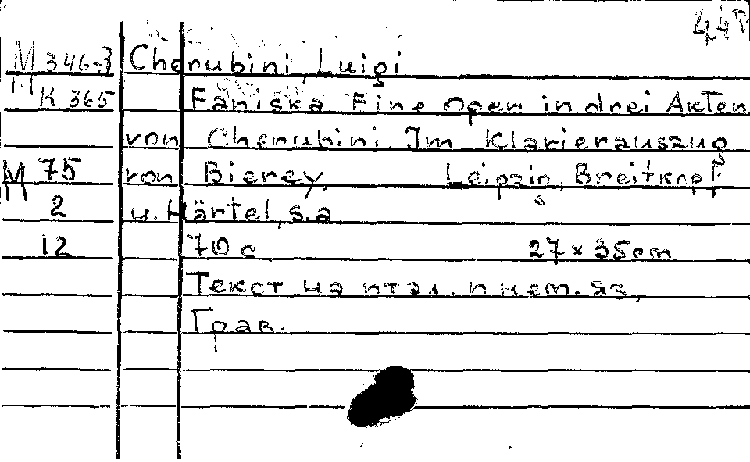 44
M 346-3 Cherubini, Luigi
K 365 Faniska Eine Oper in drei Akten
von Cherubini. Im Klavierauszug
M 75 von Bierey. Leipzig, Breitkopf
2 u. Härtel, s.a.
12 70 c 27 x 35 cm
Текст на итал. и нем. яз.
Грав.